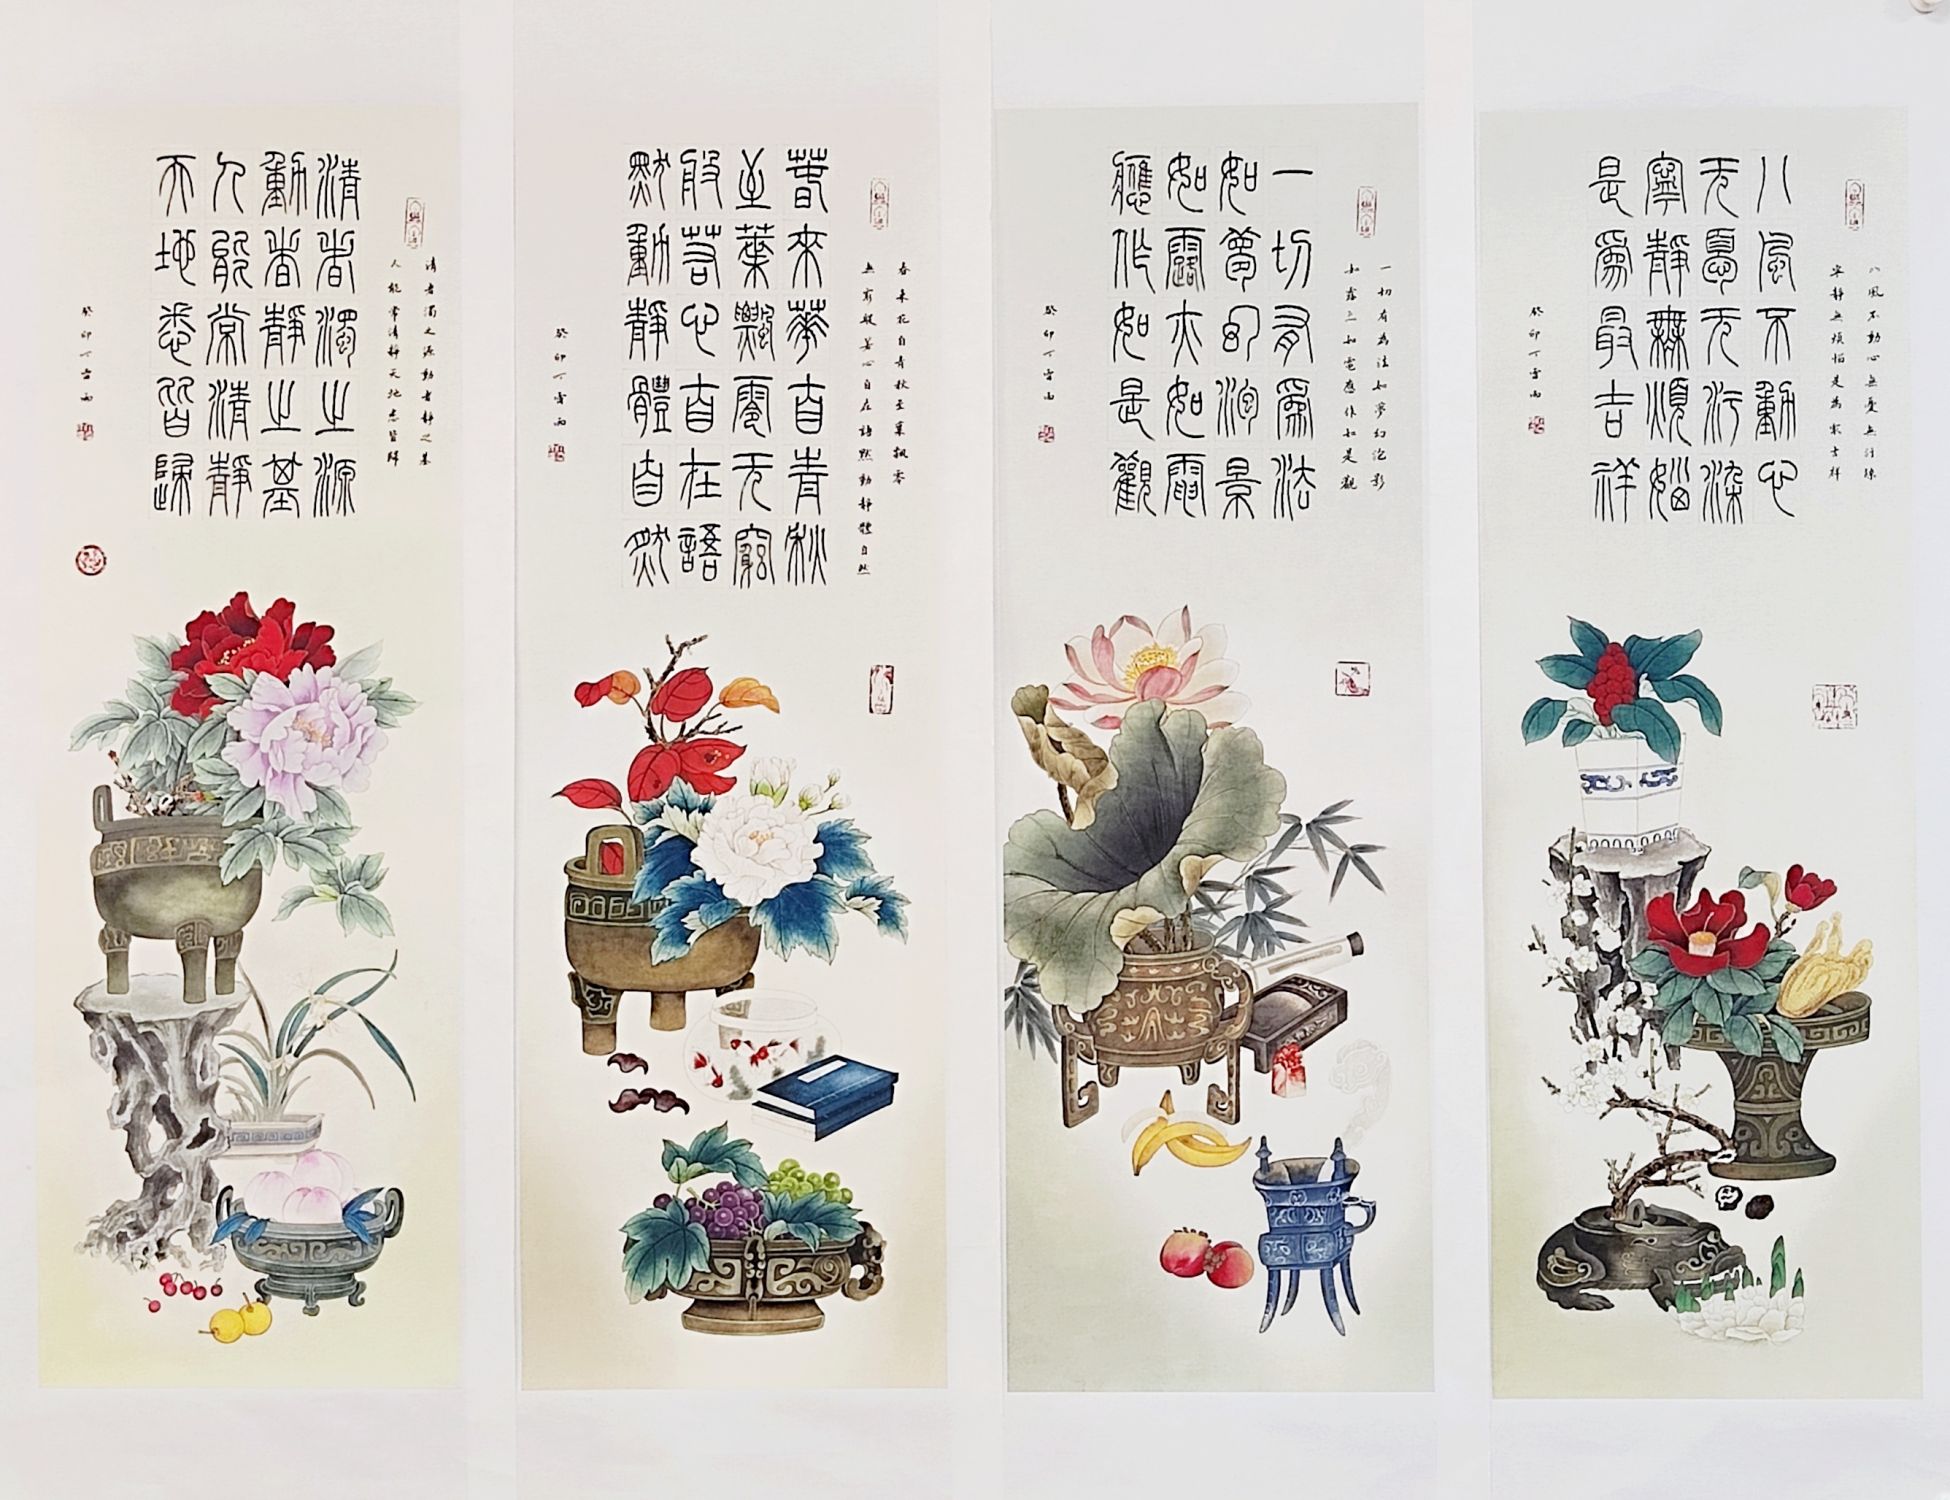 八風不動心無憂無污染
寧靜無煩惱是為最吉祥
八風不動心
无憂无污染
寧靜無煩惱
是爲最吉祥
癸卯丁雪雨
一切有為法如夢幻泡影
如露亦如電應作如是觀
一切有爲法
如夢幻泡景
如露亦如電
應作如是觀
癸卯丁雪雨
春來花自青秋至葉飄零
無窮般若心自在語默動靜體自然
春來華自青秋
至葉飄零无窮
般若心自在語
默動靜體自然
癸卯丁雪雨
清者濁之源動者靜之基
人能常清靜天地悉皆歸
清者濁之源
動者靜之基
人能常清靜
天地悉皆歸
癸卯丁雪雨